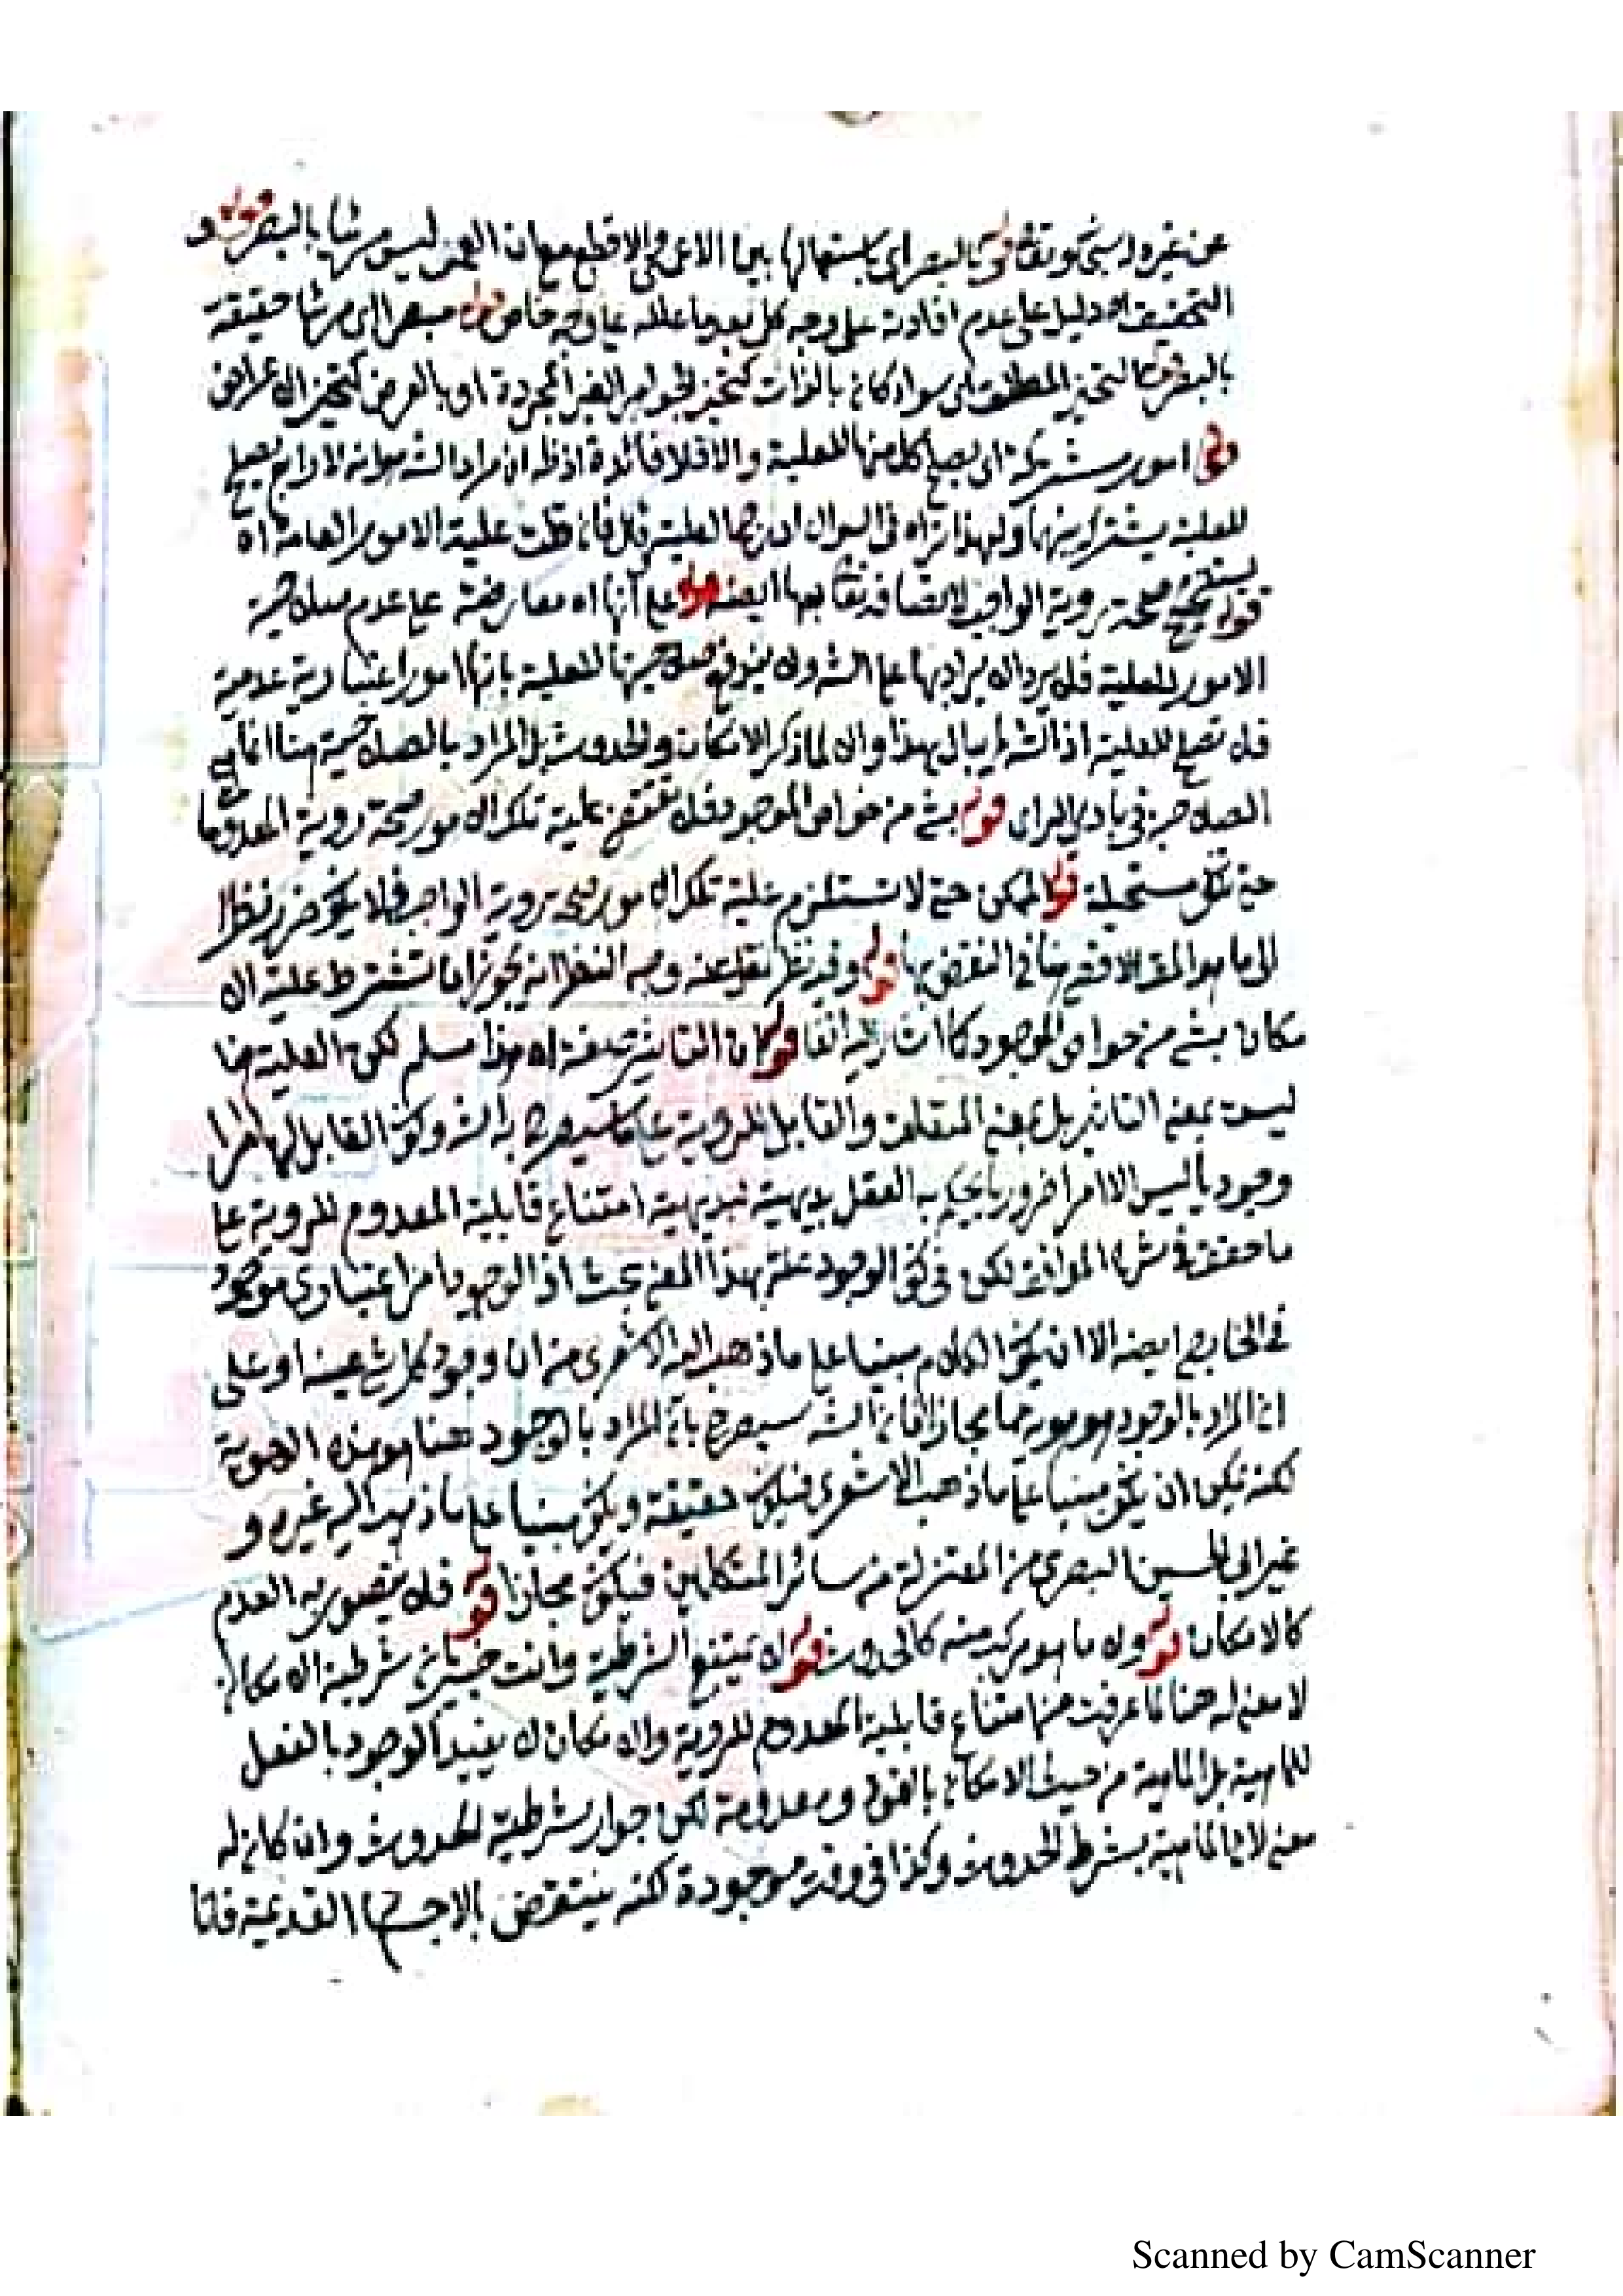 بالبصر قوله و
التحقيق اه دليل على عدم افادته على وجه كل بعد ما علله على وجه خاص قوله مبصرا اى مرئيا حقيقة
بالبصر قوله كالتحيز المطلق اى سواء كان بالذات كتحيز الجواهر الغير المجردة او بالعرض كتحيز الاعراض
قوله امور مشتركة اى يصلح كل منها للعلية والا فلا فائدة اذ ظاهر ان مراد الشه انه لا رابع يصلح
للعلية يشترك بينهما ولهذا تراه فى السوال العلية قوله فان قلت علية الامور العامة اه
قوله صحة روية الواجب لاتصافه تعا بها ايضا قوله على انها اه معارضة على عدم صلاحية
الامور للعلية فلا يرد ان يرادها على الشه ولا صلاحيتها للعلية بانها امور اعتبارية عدمية
فلا تصلح للعلية اذ الشه لا يبالى بهذا والا لما ذكر الامكان والحدوث بل المراد بالصلاحية هنا انما هى
الصلاحية فى بادى الراى قوله بشئ من خواص الموجود فلا تقتضى علية تلك الامور صحة روية المعدوم
حتى تكون مستحيلة قوله الممكن حتى لا تستلزم علية تلك الامور صحة روية الواجب فلا يخ نظرا
الى ما هو المقه هنا فى النقض بها قوله وفيه نظر نقل عنه وجه النظر انه يجوز ان تشترط علية الا
مكان بشئ من خواص الموجود كما اشار اليه انفا قوله لان التاثير صفة اه هذا مسلم لكن العلية هنا
ليست بمعنى التاثير بل بمعنى المتعلق والقابل للروية على ما سيصرح به الشه وكون القابل لها امرا
وجوديا ليس الا امرا ضروريا يحكم به العقل بديهة لبديهية امتناع قابلية المعدوم للروية على
ما حققه فى شرح المواقف لكن فى كون الوجود علة بهذا المعنى بحث اذ الوجود امر اعتبارى موجود
فى الخارج ايضا الا ان يكون الكلام مبنيا على ما ذهب اليه الاشعرى من ان وجود كل شئ عينه او على
ان المراد بالوجود هو هويته مجازا فان الشه سيصرح بان المراد بالوجود هنا هو هذه الهوية
لكنه يمكن ان يكون مبنيا على ما ذهب الاشعرى فيكون حقيقة ويكون مبنيا على ما ذهب اليه غيره و
غير ابى الحسين البصرى من المعتزلة من سائر المتكلمين فيكون مجازا قوله فلا يتصور به العدم
كالامكان قوله ولا ما هو مركب منه كالحدوث قوله لا يمتنع الشرطية وانت خبير بان شرطية الامكان
لا معنى له هنا لما عرفت من امتناع قابلية المعدوم للروية والامكان لا يفيد الوجود بالفعل
للماهية بل الماهية من حيث الامكان بالقوة ومعدومة لكن جواز شرطية الحدوث وان كان له
معنى لان الماهية بشرط الحدوث وكذا فى وقته موجودة لكنه ينتقض بالاجسام القديمة فانا